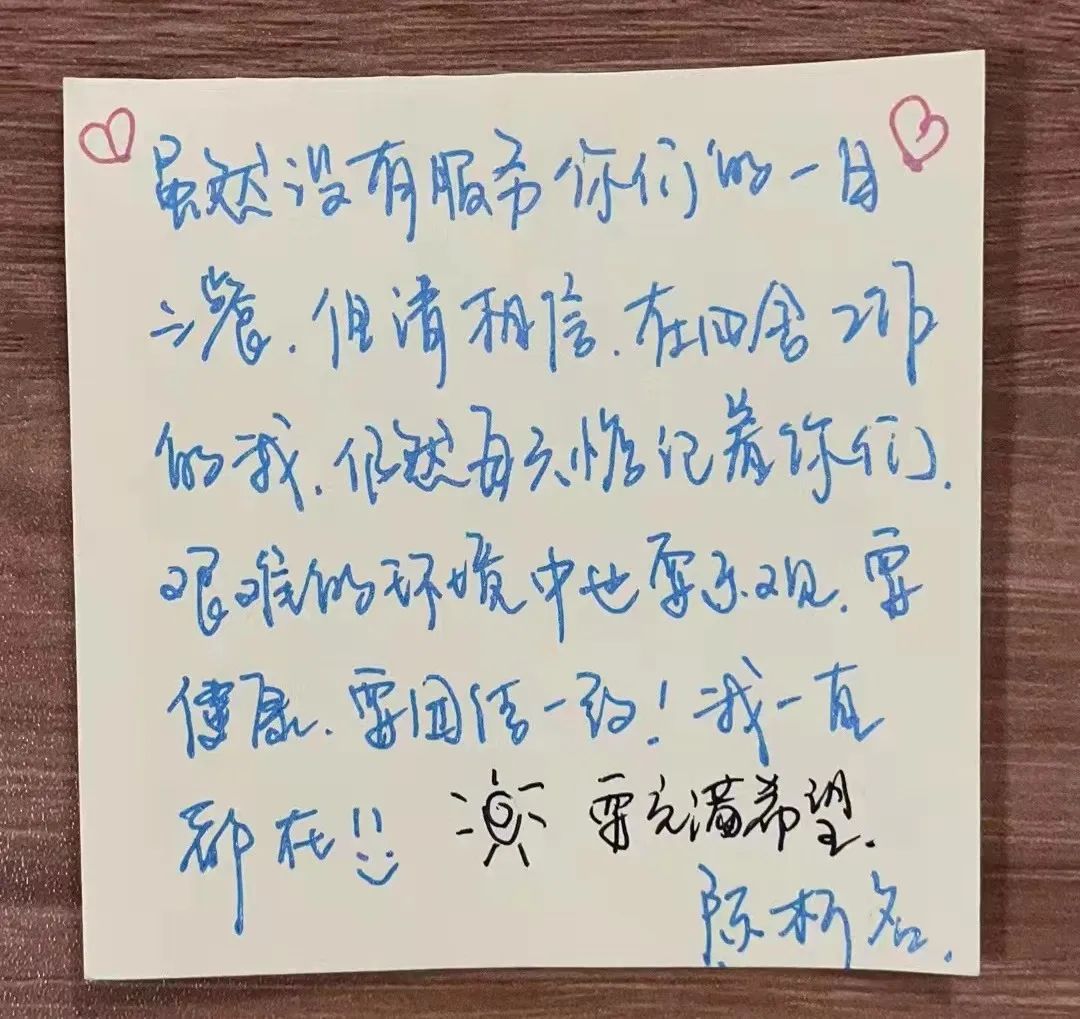 虽然没有服务你们的一日
三餐.但请相信.在四舍2邦
的我.仍然每天惦记着你们.
艰难的环境中也要乐观.要
健康.要团结一致!我一直
都在!!
要充满希望.
陈柯名.